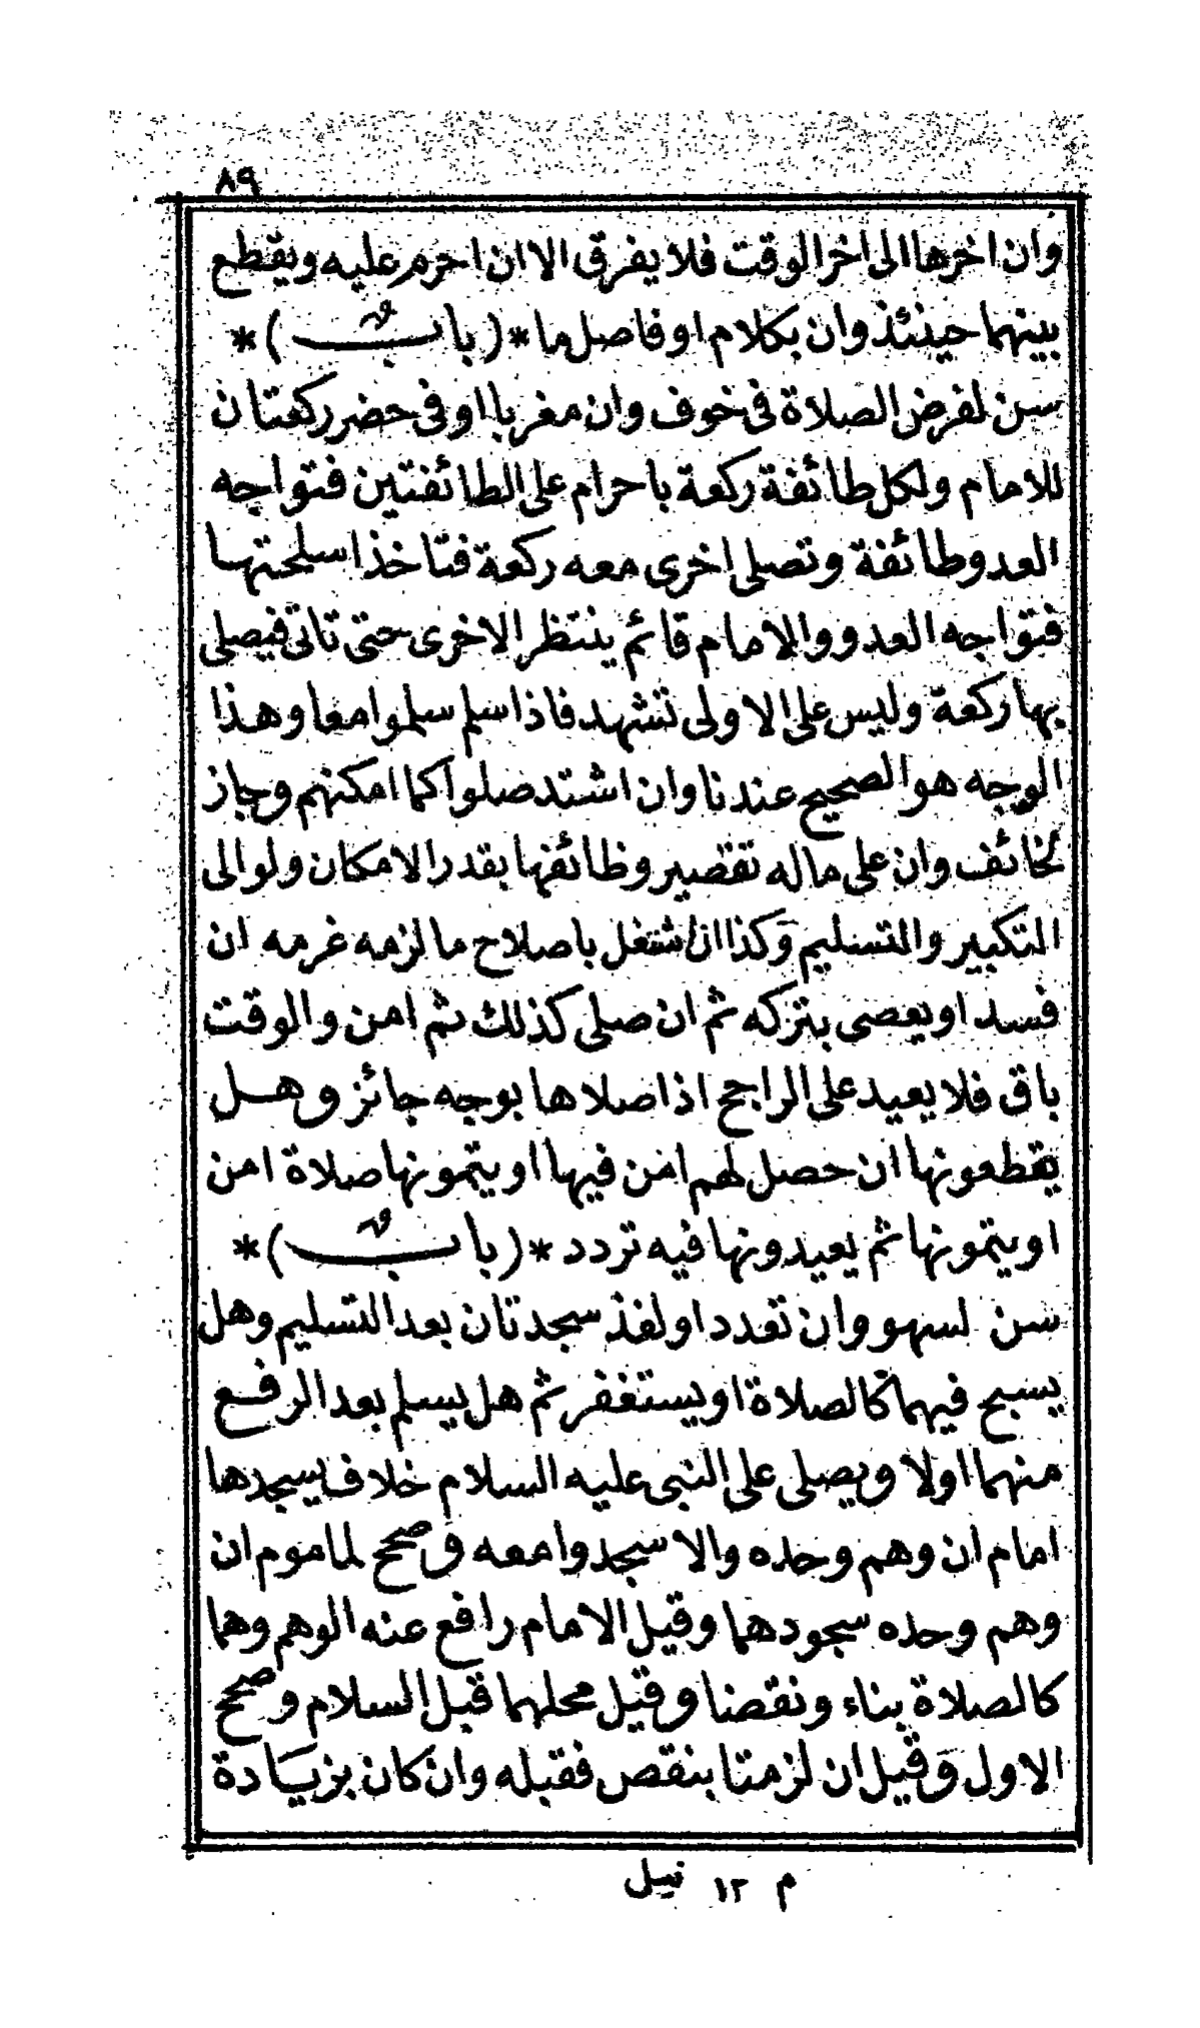 ٨٩
وان اخرها الى اخر الوقت فلا يفرق الا ان احرم عليه ويقطع
بينهما حينئذ وان بكلام او فاصل ما * ( باب ) *
سن لفرض الصلاة فى خوف وان مغربا او فى حضر ركعتان
للامام ولكل طائفة ركعة باحرام على الطائفتين فتواجه
العدو طائفة وتصلى اخرى معه ركعة فتاخذ اسلحتها
فتواجه العدو والامام قائم ينتظر الاخرى حتى تاتى فيصلى
بها ركعة وليس على الاولى تشهد فاذا سلم سلموا معا وهذا
الوجه هو الصحيح عندنا وان اشتد صلوا كما امكنهم وجاز
لخائف وان على ماله تقصير وظائفها بقدر الامكان ولو الى
التكبير والتسليم وَكذا ان اشتغل باصلاح ما لزمه غرمه ان
فسد او يعصى بتركه ثم ان صلى كذلك ثم امن والوقت
باق فلا يعيد على الراجح اذا صلاها بوجه جائز وهل
يقطعونها ان حصل لهم امن فيها او يتمونها صلاة امن
او يتمونها ثم يعيدونها فيه تردد * ( باب ) *
سن لسهو وان تعدد او لفذ سجدتان بعد التسليم وهل
يسبح فيهما كالصلاة او يستغفر ثم هل يسلم بعد الرفع
منهما اولا ويصلى على النبى عليه السلام خلاف يسجدها
امام ان وهم وحده والا سجدوا معه وصحح لماموم ان
وهم وحده سجودهما وقيل الامام رافع عنه الوهم وهما
كالصلاة بناء ونقضا وقيل محلهما قبل السلام وصحح
الاول وَقيل ان لزمتا بنقص فقبله وان كان بزيَادة
م ١٢ نيل